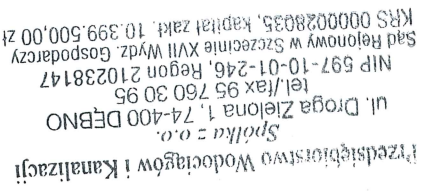 Przedsiębiorstwo Wodociągów i Kanalizacji
Spółka z o.o.
ul. Droga Zielona 1, 74-400 DĘBNO
tel./fax 95 760 30 95
NIP 597-10-01-246, Regon 210238147
Sąd Rejonowy w Szczecinie XVII Wydz. Gospodarczy
KRS 0000028035, kapitał zakł. 10.399.500,00 zł